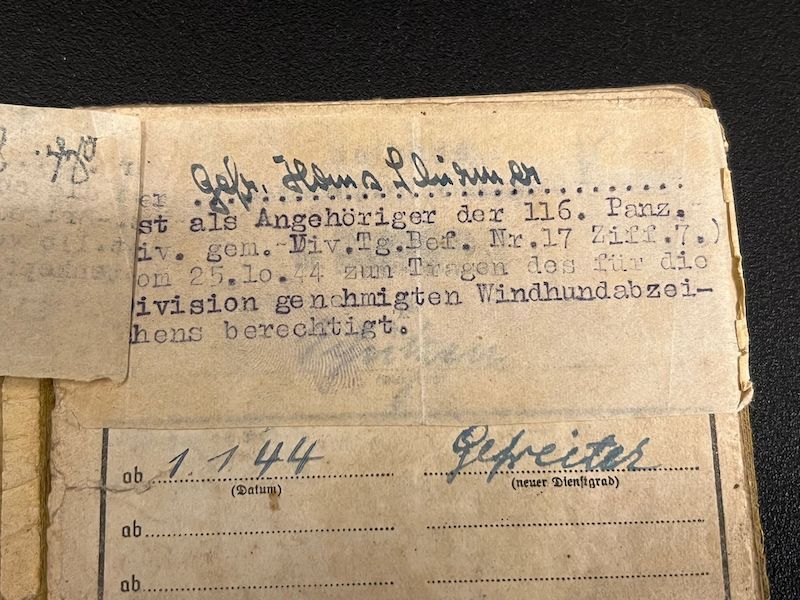 er Gefr. Hans Stürmer
st als Angehöriger der 116. Panz.-
iv. gem. Div.Tg.Bef. Nr.17 Ziff.7.)
om 25.10.44 zum Tragen des für die
ivision genehmigten Windhundabzei-
hens berechtigt.
ab 1.1.44 Gefreiter
(Datum) (neuer Dienstgrad)
ab
ab